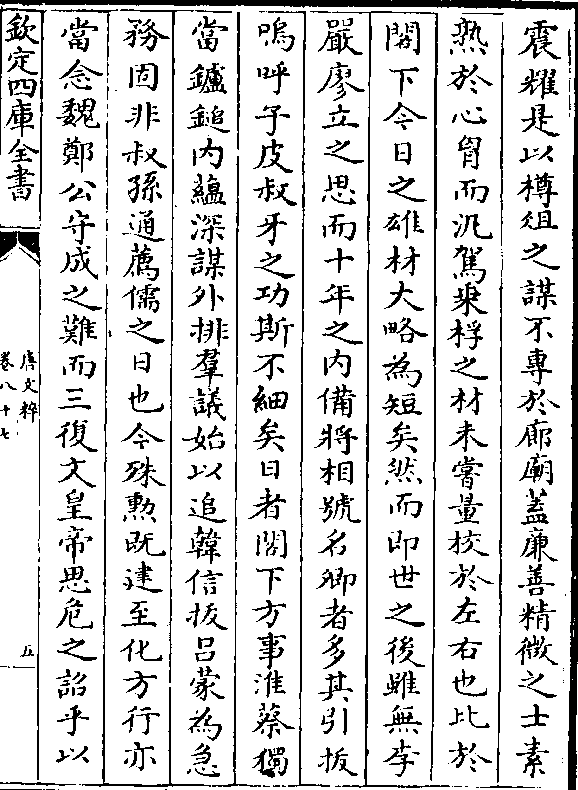 震耀是以樽俎之謀不專於廊廟蓋廉善精微之士素
熟於心胷而汎駕乘桴之材未嘗量校於左右也比於
閣下今日之雄材大略為短矣然而即世之後雖無李
嚴廖立之思而十年之內備將相號名卿者多其引拔
嗚呼子皮叔牙之功斯不細矣日者閣下方事淮蔡獨
當鑪鎚內蘊深謀外排羣議始以追韓信拔呂蒙為急
務固非叔孫通薦儒之日也今殊勲既建至化方行亦
當念魏鄭公守成之難而三復文皇帝思危之詔乎以
欽定四庫全書
唐文粹
卷八十七
五